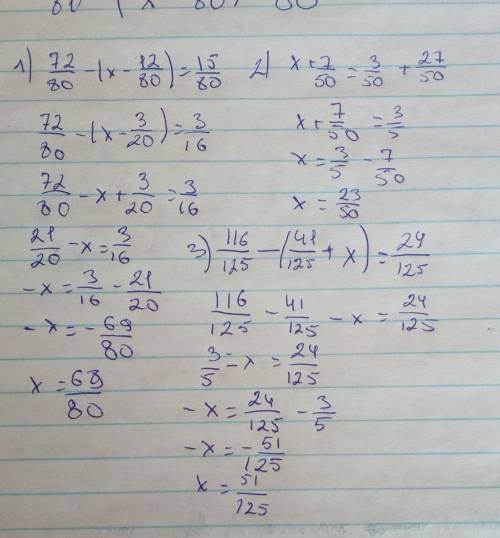 1) 72/80 - (x - 12/80) = 15/80
72/80 - (x - 3/20) = 3/16
72/80 - x + 3/20 = 3/16
21/20 - x = 3/16
- x = 3/16 - 21/20
- x = - 69/80
x = 69/80
2) x + 7/50 = 3/50 + 27/50
x + 7/50 = 3/5
x = 3/5 - 7/50
x = 23/50
3) 116/125 - (41/125 + x) = 24/125
116/125 - 41/125 - x = 24/125
3/5 - x = 24/125
- x = 24/125 - 3/5
- x = - 51/125
x = 51/125